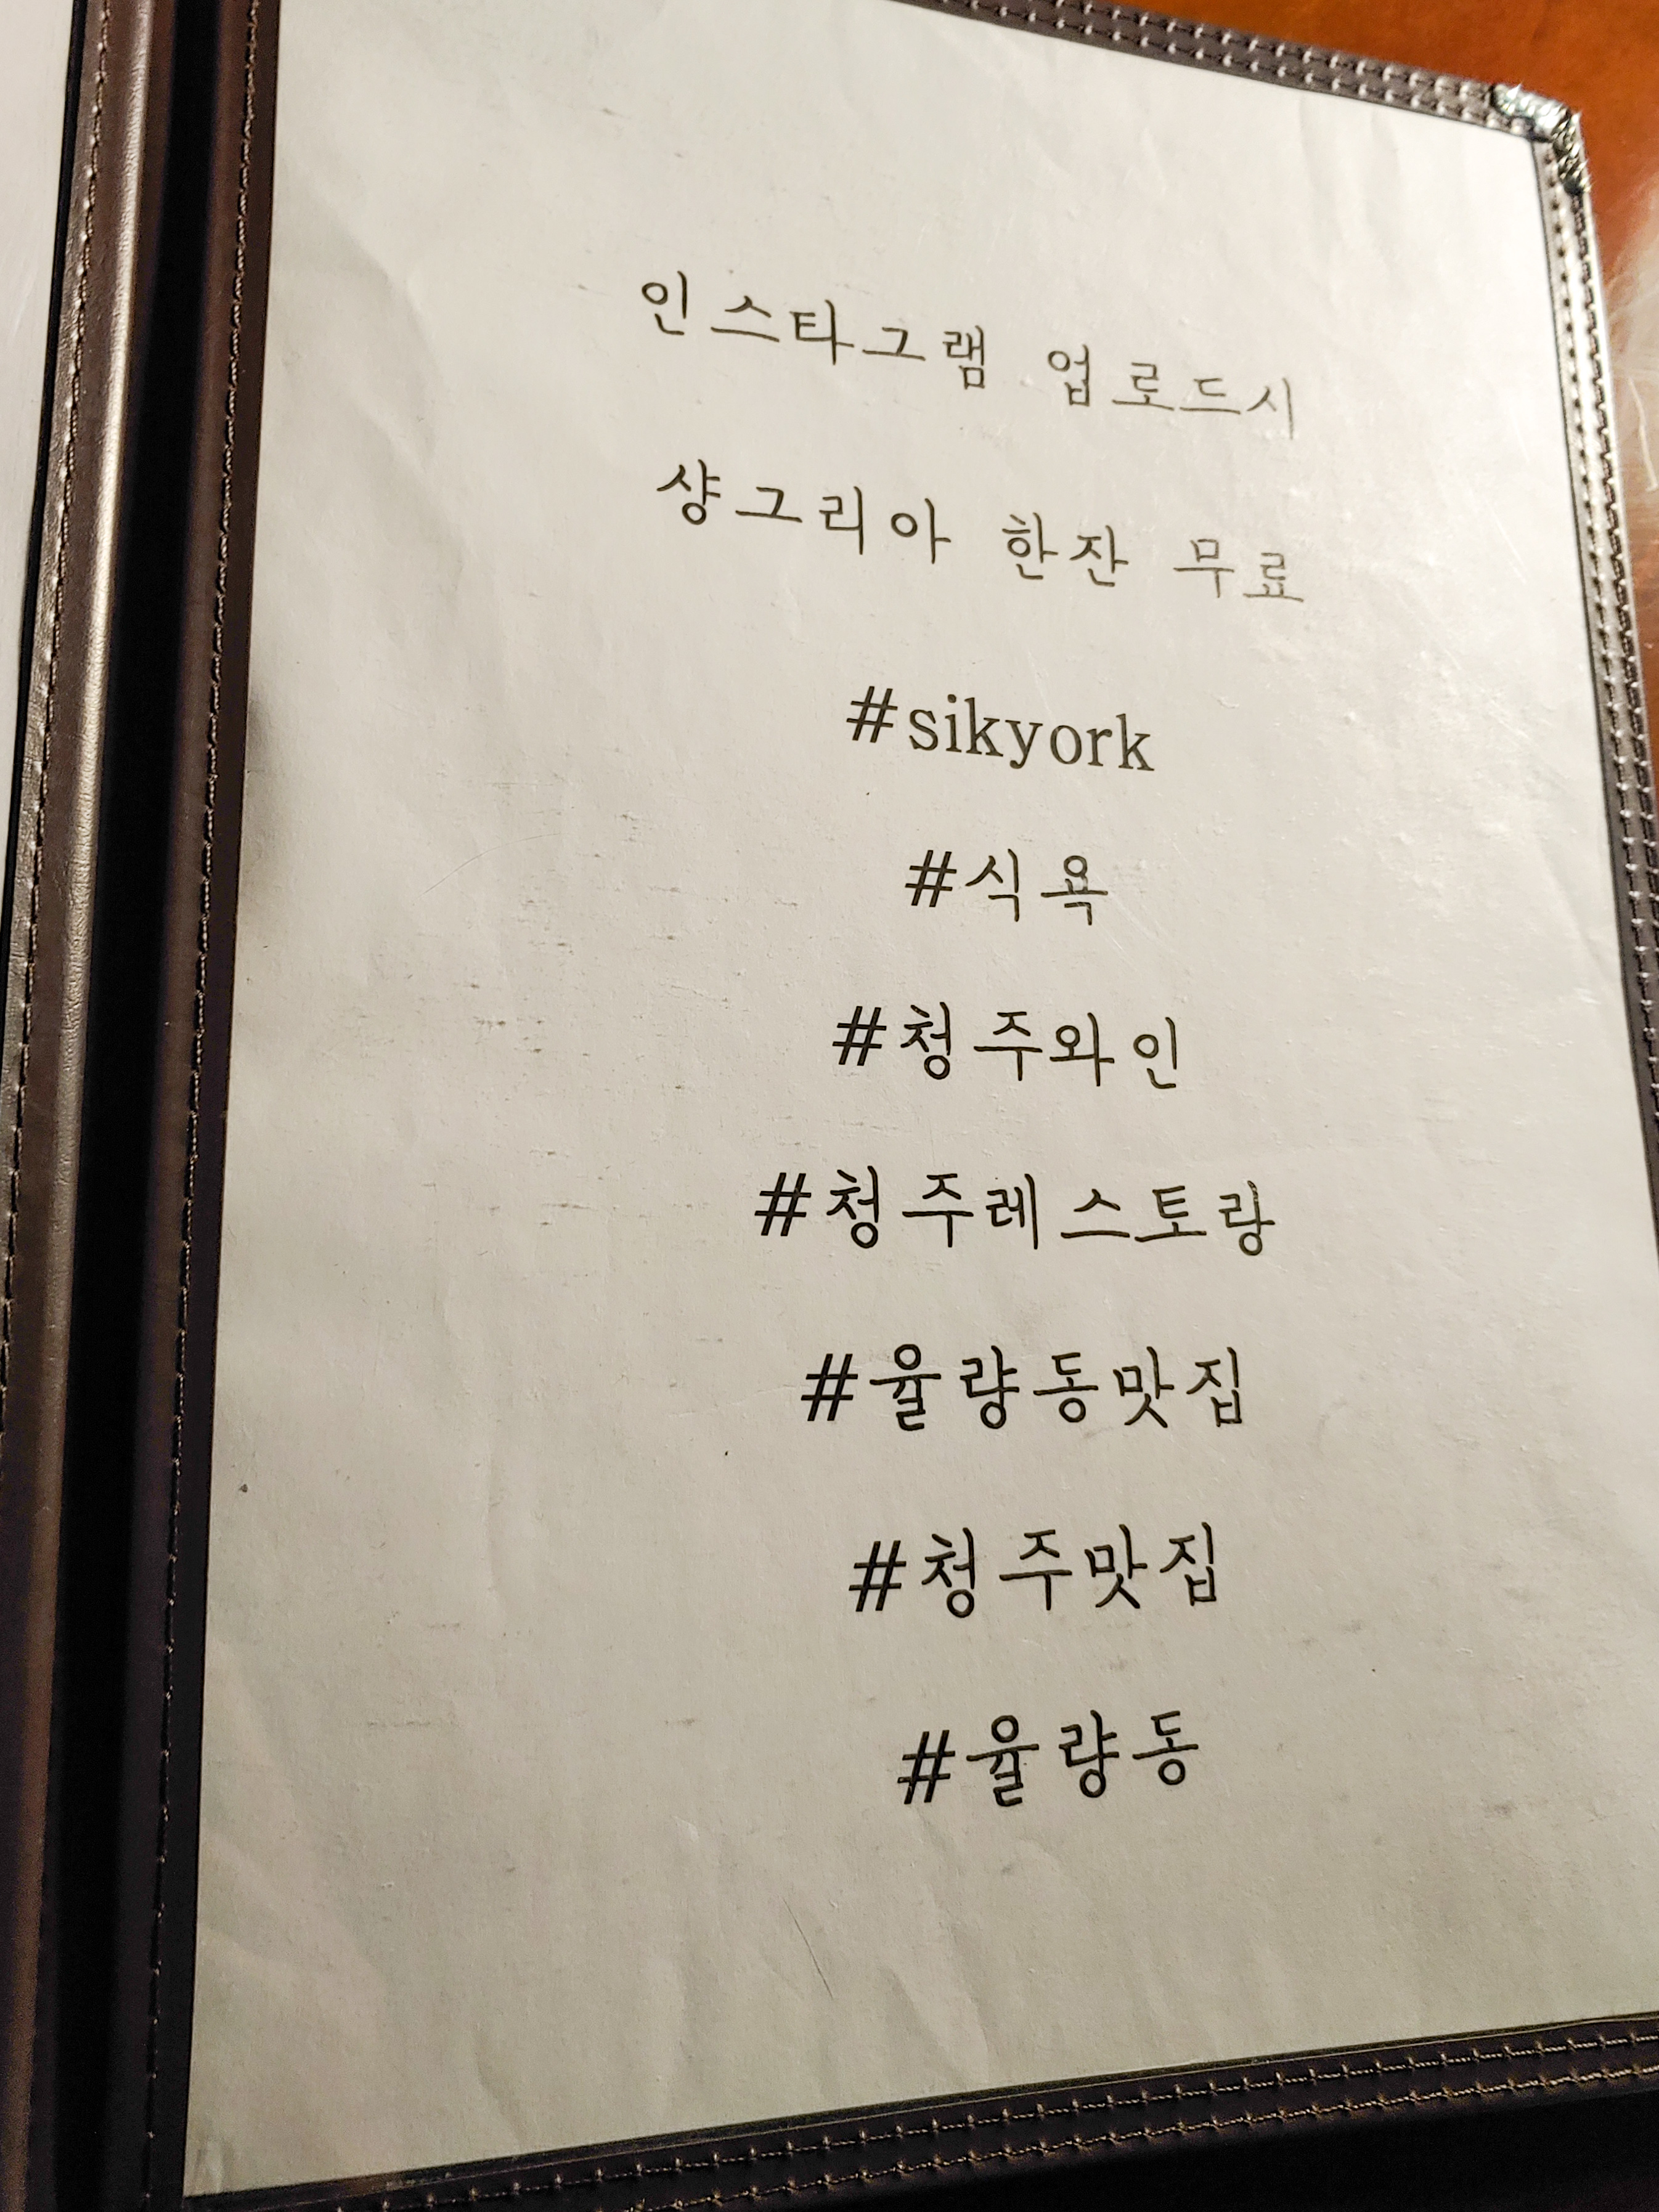 인스타그램 업로드시
샹그리아 한잔 무료
#sikyork
#식욕
#청주와인
#청주레스토랑
#율량동맛집
#청주맛집
#율량동